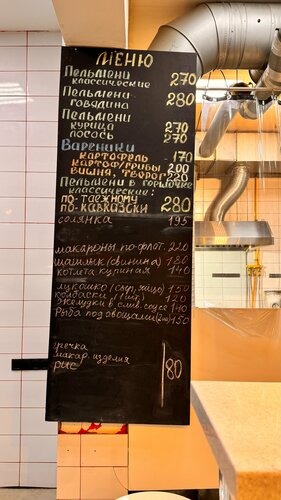 МЕНЮ
Пельмени
классические 270
Пельмени
говядина 280
Пельмени
курица 270
лосось 270
Вареники
картофель - 170
картоф/грибы 200
вишня, творог 220
Пельмени в горшочке
классические:
по-таежному
по-кавказски 280
солянка 195
макароны по-флот. 220
шашлык (свинина) 180
котлета куриная 140
лукошко (сыр, яйцо) 150
колбаски (1шт) 120
желудки в слив. соусе 140
Рыба под овощами 150
гречка
макар. изделия
рис 80